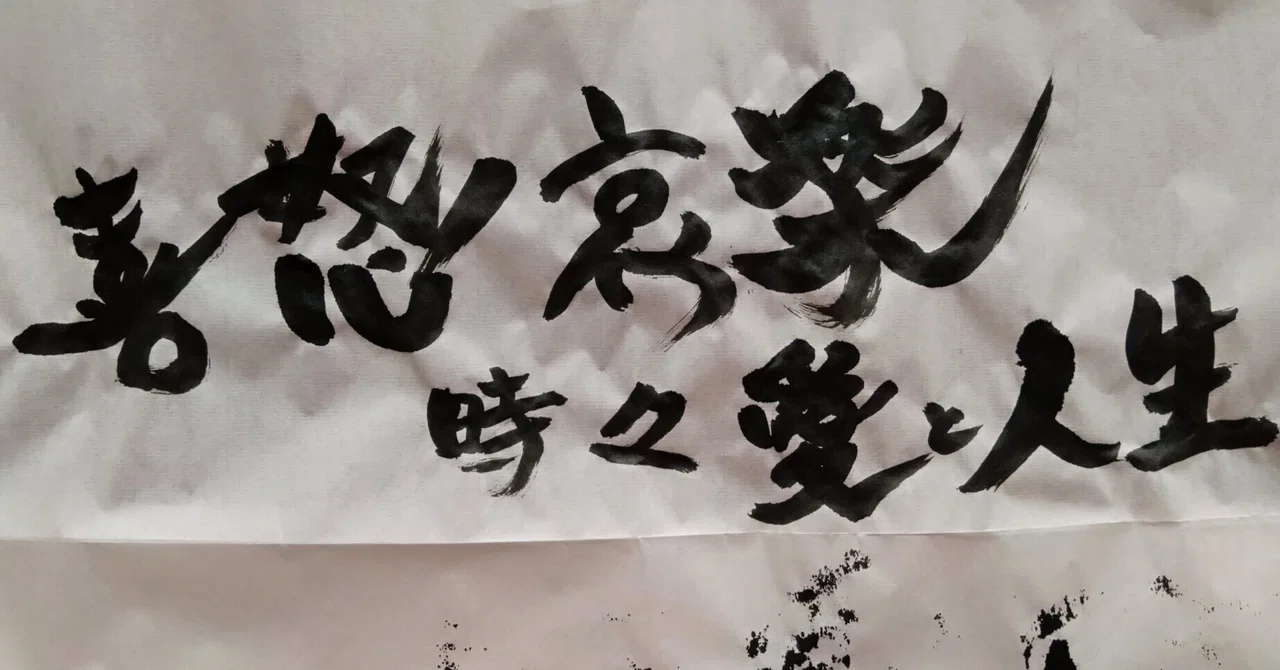 喜怒哀楽
時々愛と人生